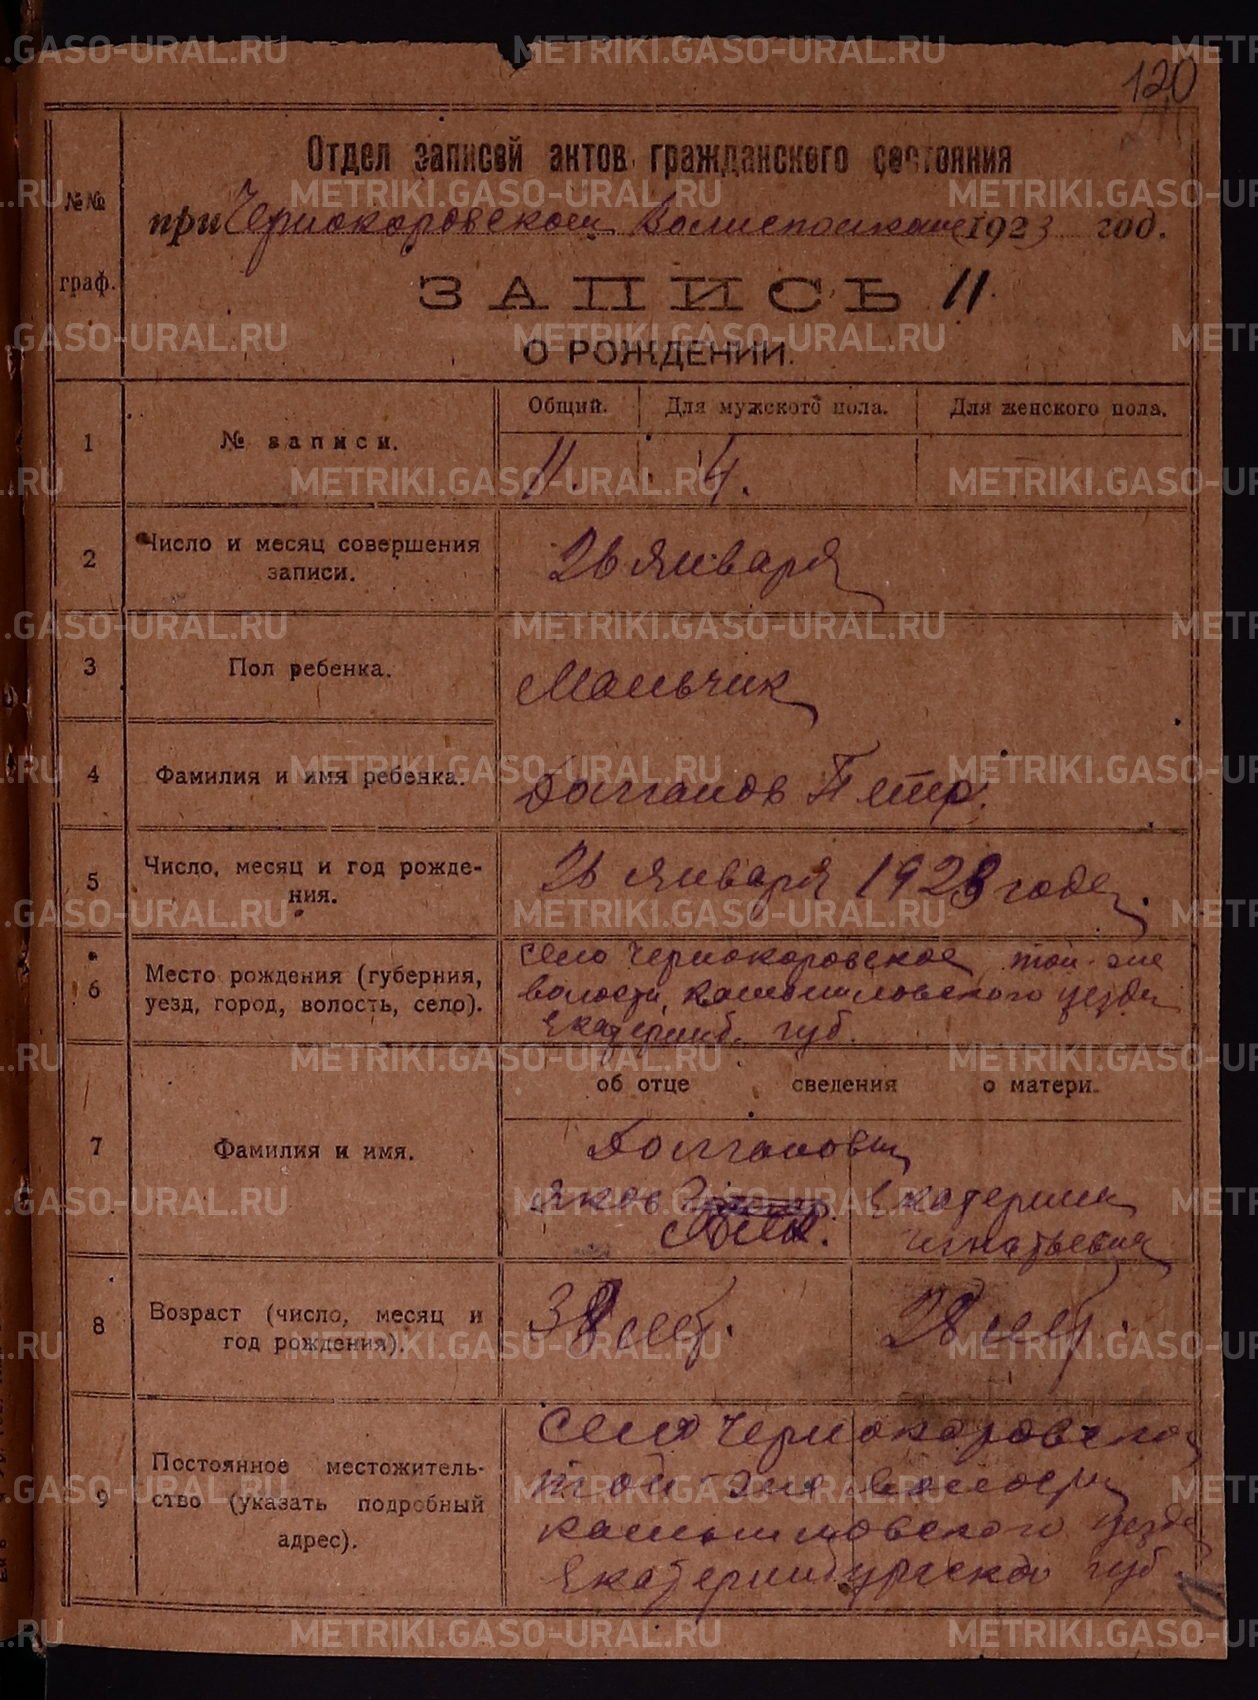 120
Отдел записей актов гражданского состояния
при Чернокоровском Волисполкоме 1923 год.
№№ граф.
ЗАПИСЬ 11
О РОЖДЕНИИ.
Общий. Для мужского пола. Для женского пола.
1 № записи. 11. 4.
2 Число и месяц совершения
записи.
26 Января
3 Пол ребенка. Мальчик
4 Фамилия и имя ребенка. Долганов Петр.
5 Число, месяц и год рожде-
ния.
26 Января 1923 года.
6 Место рождения (губерния,
уезд, город, волость, село).
село Чернокоровское той-же
волости, Камышловского уезда
Екатеринб. губ.
об отце сведения о матери.
7 Фамилия и имя.
Долгановы
Яков
Екатерина
Игнатьевна
8 Возраст (число, месяц и
год рождения).
38 лет. 28 лет.
9 Постоянное местожитель-
ство (указать подробный
адрес).
Село Чернокоровское
той-же волости
Камышловского уезда
Екатеринбургской губ
METRIKI.GASO-URAL.RU